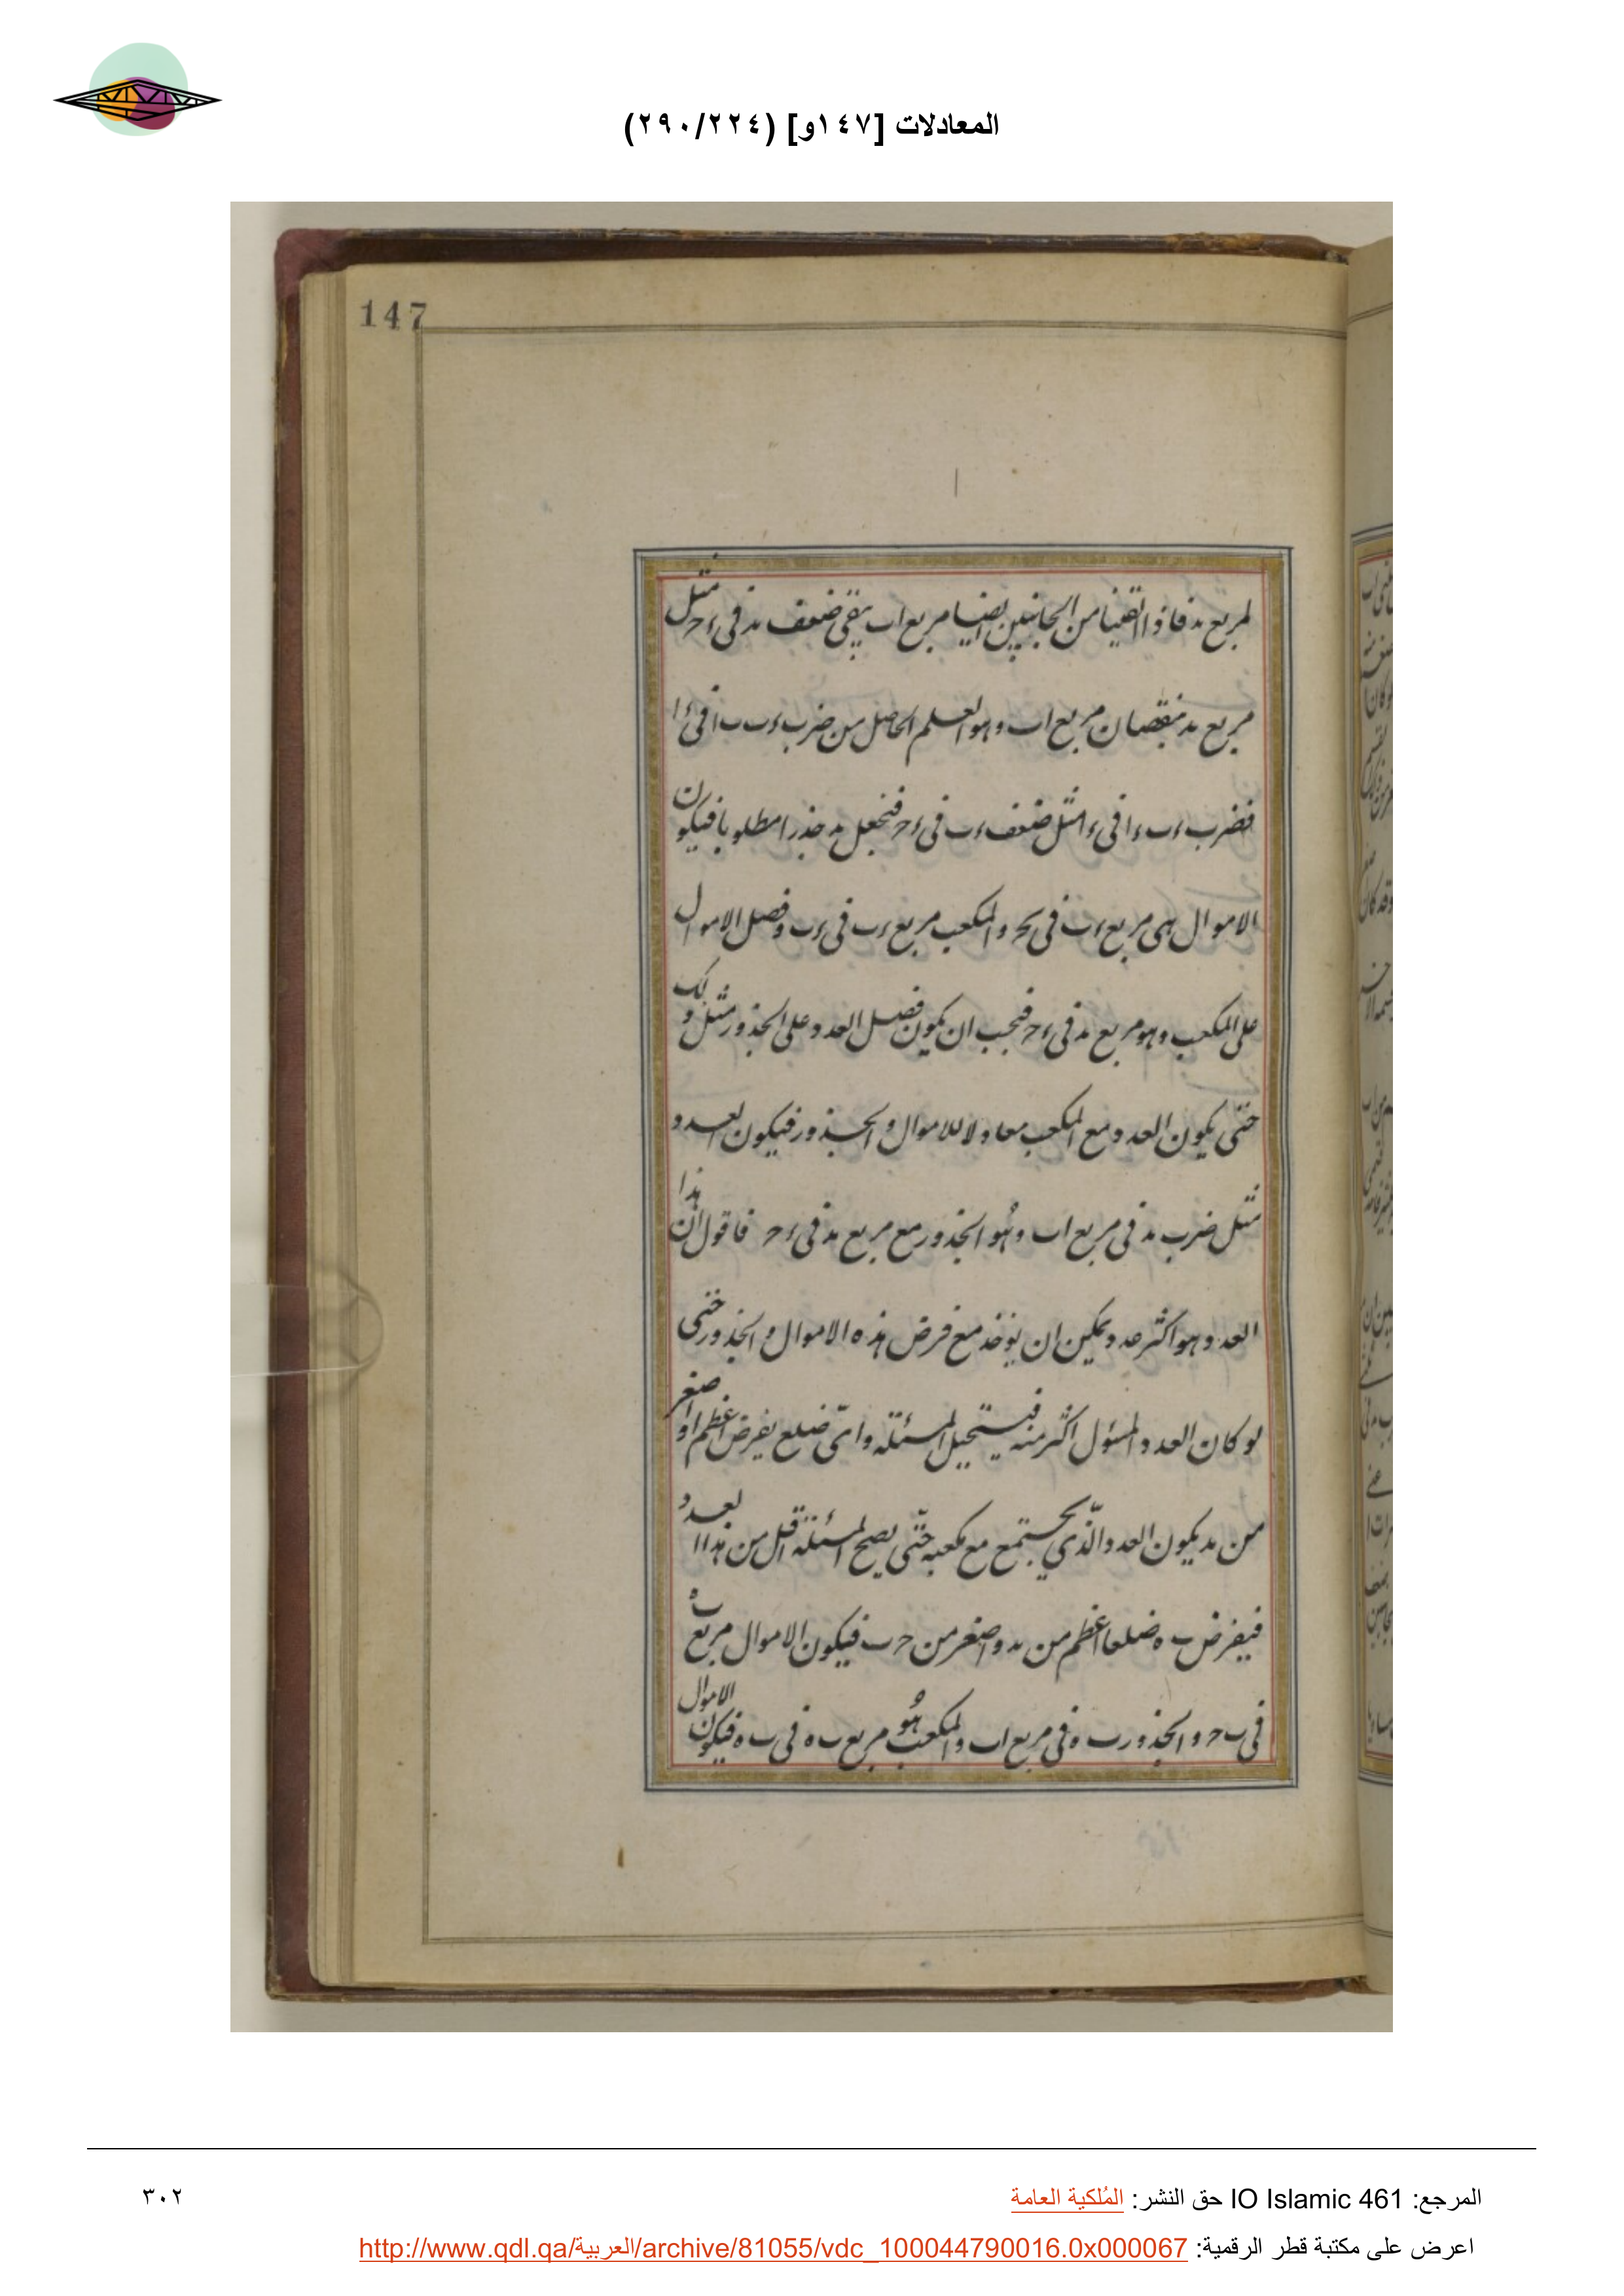 المعادلات [١٤٧و] (٢٩٠/٢٢٤)
147
لمربع ٮد فاذا القينا من الجانبين ايضا مربع اب يبقى ضعف ٮد فى ءحـ مثل
مربع ٮد بنقصان مربع اب وهو العلم الحاصل من ضرب ءب ب ا فى ءا
فضرب ءب ءا فى ءا مثل ضعف ءب فى ءحـ فنجعل ٮد جذرا مطلوبا فيكون
الاموال هى مربع ءب فى بحـ والمكعب مربع ءب فى ءب وفضل الاموال
على المكعب وهو مربع ٮد فى ءحـ فيجب ان يكون فضل العدد على الجذور مثل ذلك
حتى يكون العدد مع المكعب معادلا للاموال والجذور فيكون العدد
مثل ضرب ٮد فى مربع اب وهو الجذور مع مربع ٮد فى ءحـ فاقول ان هذا
العدد هو اكثر عدد يمكن ان يوخذ مع فرض هذه الاموال والجذور حتى
لو كان العدد المسؤل اكثر منه فيستحيل المسئلة واىّ ضلع يفرض اعظم او اصغر
من ٮد يكون العدد الّذي يجتمع مع مكعبه حتّى يصح المسئلة اقل من هذا العدد
فيفرض ب ه ضلعا اعظم من ٮد واصغر من حـ ب فيكون الاموال مربع ب ه
فى ب حـ والجذور ب ه فى مربع اب والمكعب هو مربع ب ه فى ب ه فيكون الاموال
المرجع: IO Islamic 461 حق النشر: المُلكية العامة
٣٠٢
اعرض على مكتبة قطر الرقمية: http://www.qdl.qa/العربية/archive/81055/vdc_100044790016.0x000067